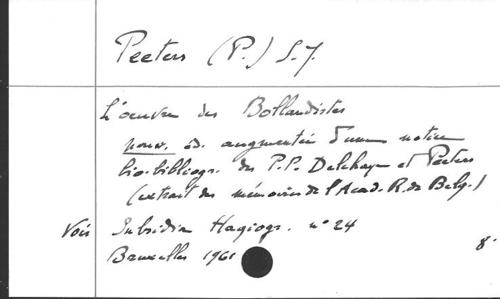 Peeters (P.) S.J.
L'oeuvre des Bollandistes
nouv. éd. augmentée d'une notice
bio-bibliogr. des P.P. Delehaye et Peeters
(extrait des mémoires de l'Acad. R. de Belg.)
Voir Subsidia Hagiogr. n° 24
Bruxelles 1961 8°